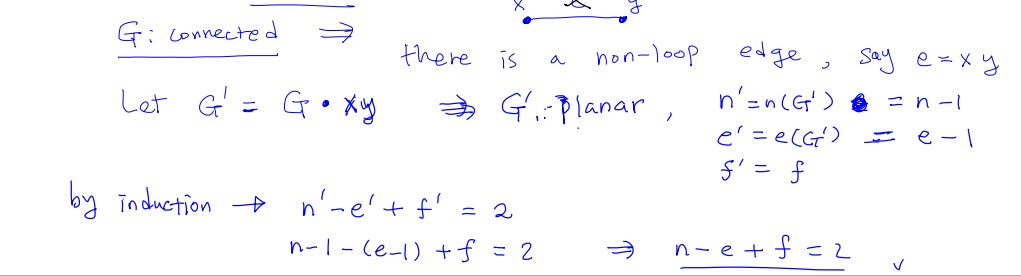 x e y
G: connected ⇒ there is a non-loop edge, say e = xy
Let G' = G • xy ⇒ G': planar, n' = n(G') = n-1
e' = e(G') = e-1
f' = f
by induction → n' - e' + f' = 2
n-1-(e-1)+f = 2 ⇒ n-e+f = 2 ✓